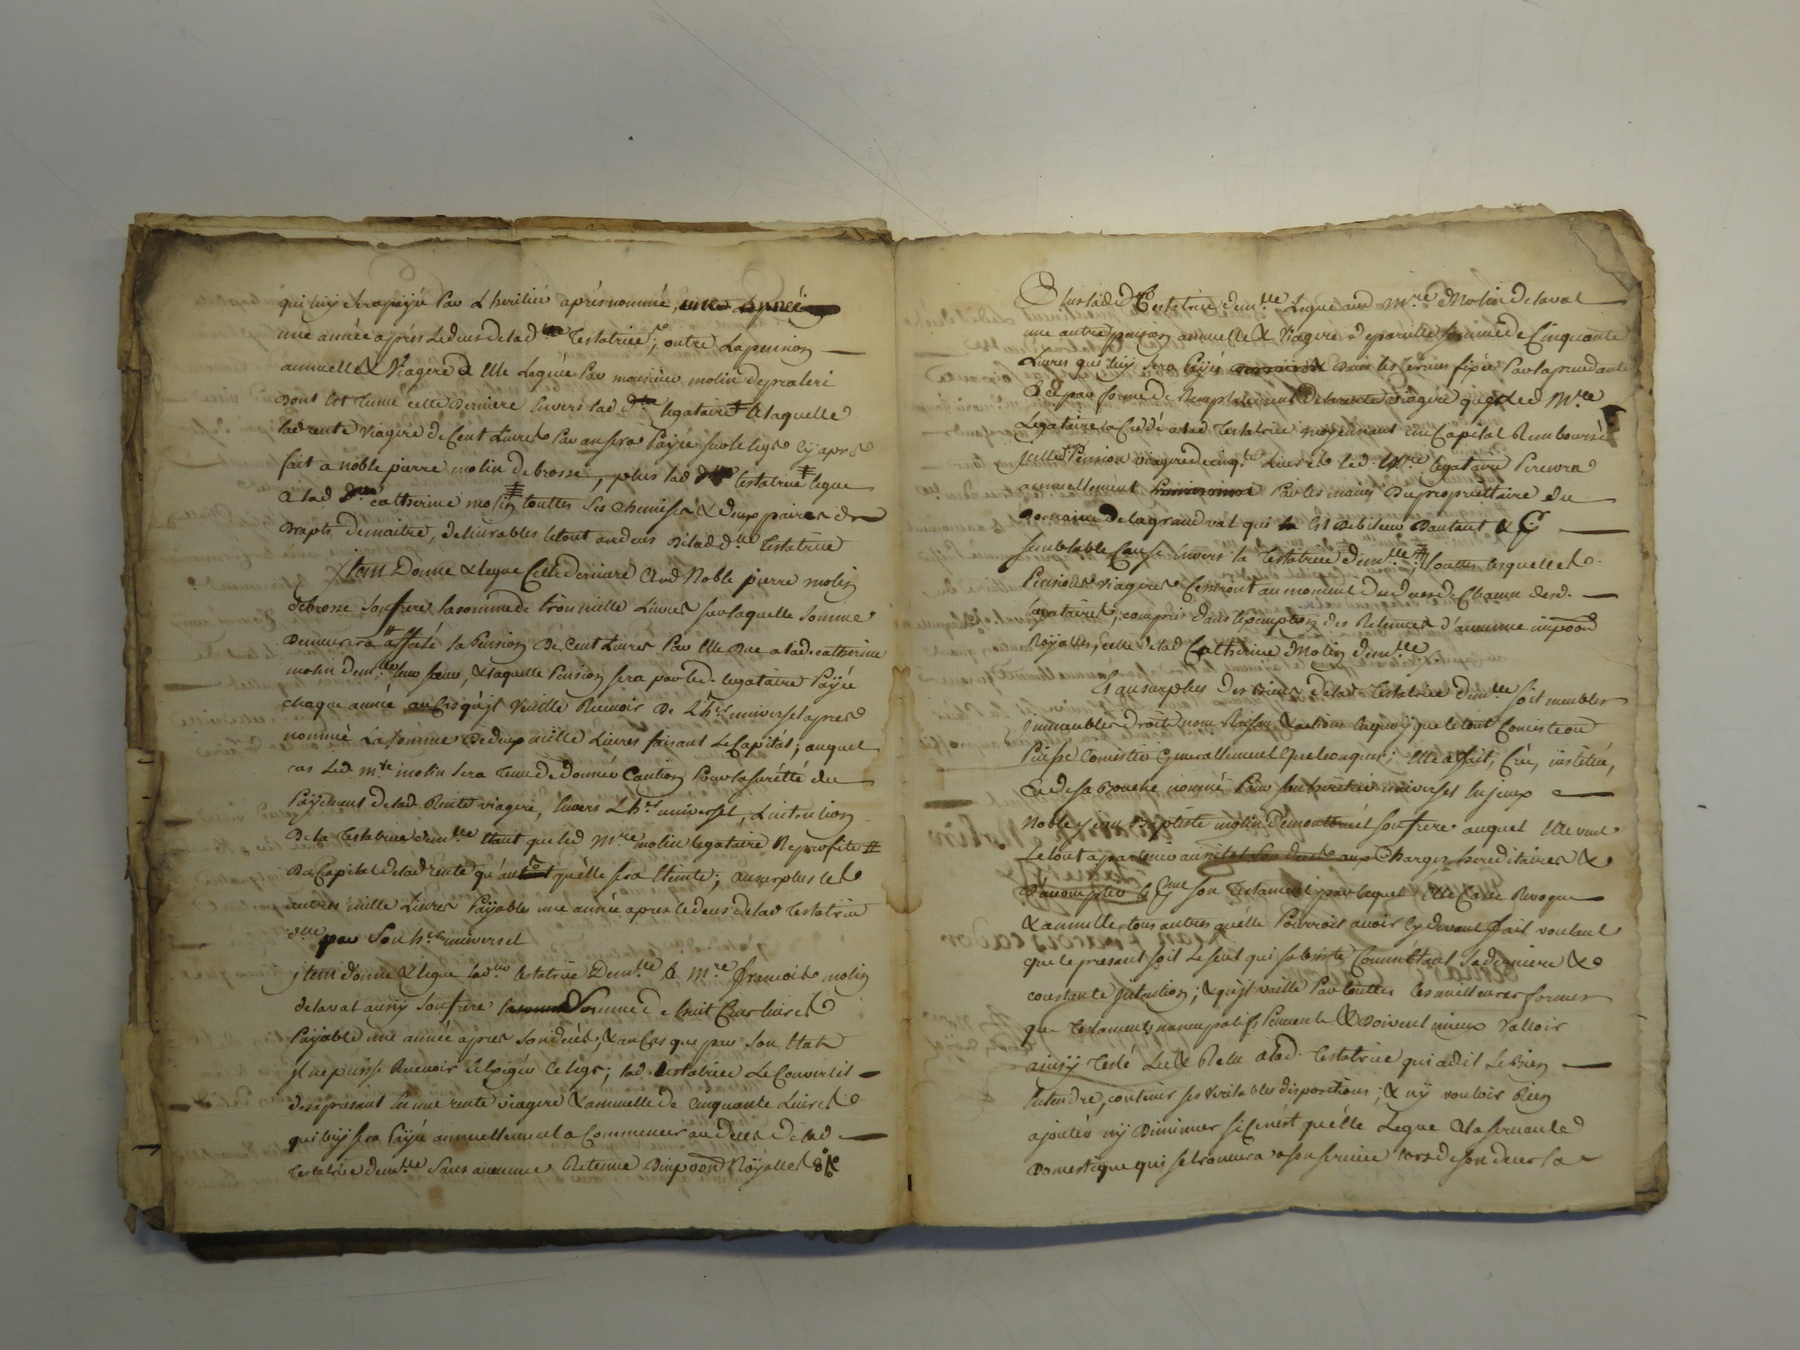 qui luy sera payé par L'heritier aprés nommé,
une année aprés Le deces de lad. Testatrice; outre La pension
annuelle & Viagere a Elle Leguée Par monsieur molin de praleri
dont Est Tenue cette derniere Envers lad. legataire & laquelle
lad. rente viagere de Cent Livres Par an sera Payée sur le legs Cy aprés
fait a noble pierre molin debrosse, plus lad. testatrice legue
a lad. catherine molin touttes ses chemises & deux paires de
draps de maitre, delivrables le tout au deces de lad. d.lle Testatrice
Item Donne & legue Cette derniere aud. Noble pierre molin
debrosse son frere la somme de trois mille Livres sur laquelle somme
demeurera affecté la Pension de Cent Livres Par Elle due a lad. catherine
molin dem.lle leur sœur, & laquelle Pension sera par led. legataire Payée
chaque année au Cas qu'il Veuille Recevoir de L'h.er universel aprés
nommé La somme de deux mille Livres faisant Le Capital; auquel
cas Led. m.re molin sera Tenu de donner Caution Pour la suretté du
Payement de lad. Rente viagere, Envers L'h.er universel, L'intention
de la Testatrice dem.lle Etant que led. m.re molin legataire Ne profite
du Capital de lad. rente qu'autant qu'elle sera Eteinte; au surplus les
autres mille Livres Payables une année apres le deces de lad. Testatrice
d.lle par Son h.er universel
item donne & legue lad. testatrice Dem.lle a M.re francois molin
delaval aussy son frere la somme de huit Cent livres
Payable une année apres son décés; & au Cas que par son Etat
il ne puisse Recevoir n'y Exiger Ce legs; lad. testatrice Le Convertit
des a present En une rente viagere & annuelle de Cinquante Livres
qui luy sera Payée annuellement a Commencer au deces de lad.
Testatrice dem.lle Sans aucunne Retenue d'impoon Royalles
Plus lad. Testatrice dem.lle Legue aud. M.re Molin delaval
une autre pension annuelle & Viagere de pareille somme de Cinquante
Livres qui luy sera Payée dans les termes fixés Par la precedante
& par forme de Remplacement de la rente viagere que led. M.re
Legataire a Cedé a lad. Testatrice moyennant un Capital Remboursé
Laquelle Pension viagere de cinq.te Livres led. M.re legataire Percevra
annuellement Par les mains du proprietaire du
domaine de la grand val qui Est debiteur d'autant &
semblable Cause Envers la Testatrice dem.lle; touttes lesquelles
Pensions viageres Cesseront au moment du deces de Chacun desd.
legataires, compris dans l'exemption des Retenues d'aucunne impoon
Royalles, celle de lad. Catherine Molin dem.lle
Et au surplus des Biens de lad. Testatrice dem.lle soit meubles
immeubles droits noms Raisons & actions En quoy que le tout Consiste ou
Puisse Consister Generallement Quelconques; Elle a fait, Créé, institué,
& de sa Bouche nommé Pour son heritier universel En iceux
Noble jean Baptiste molin demontruel son frere auquel Elle veut
Le tout apartenir aux Charges hereditaires &
d'accomplir son Testament, par lequel Elle Casse Revoque
& annulle tous autres qu'elle Pourroit avoir Cy devant fait voulant
que le present soit le seul qui subsiste Comme Etant sa derniere &
constante intention; & qu'il vaille Par touttes les meilleures formes
que Testaments nuncupatifs Peuvent & Doivent mieux Valloir
ainsy Testé Lu & Relu a lad. Testatrice qui a dit Le Bien
Entendre, contenir ses veritables dispositions; & n'y vouloir Rien
ajoutér n'y diminuer si Ce n'est qu'elle Legue a la servante
Domestique qui se trouvera a son service lors de son deces la